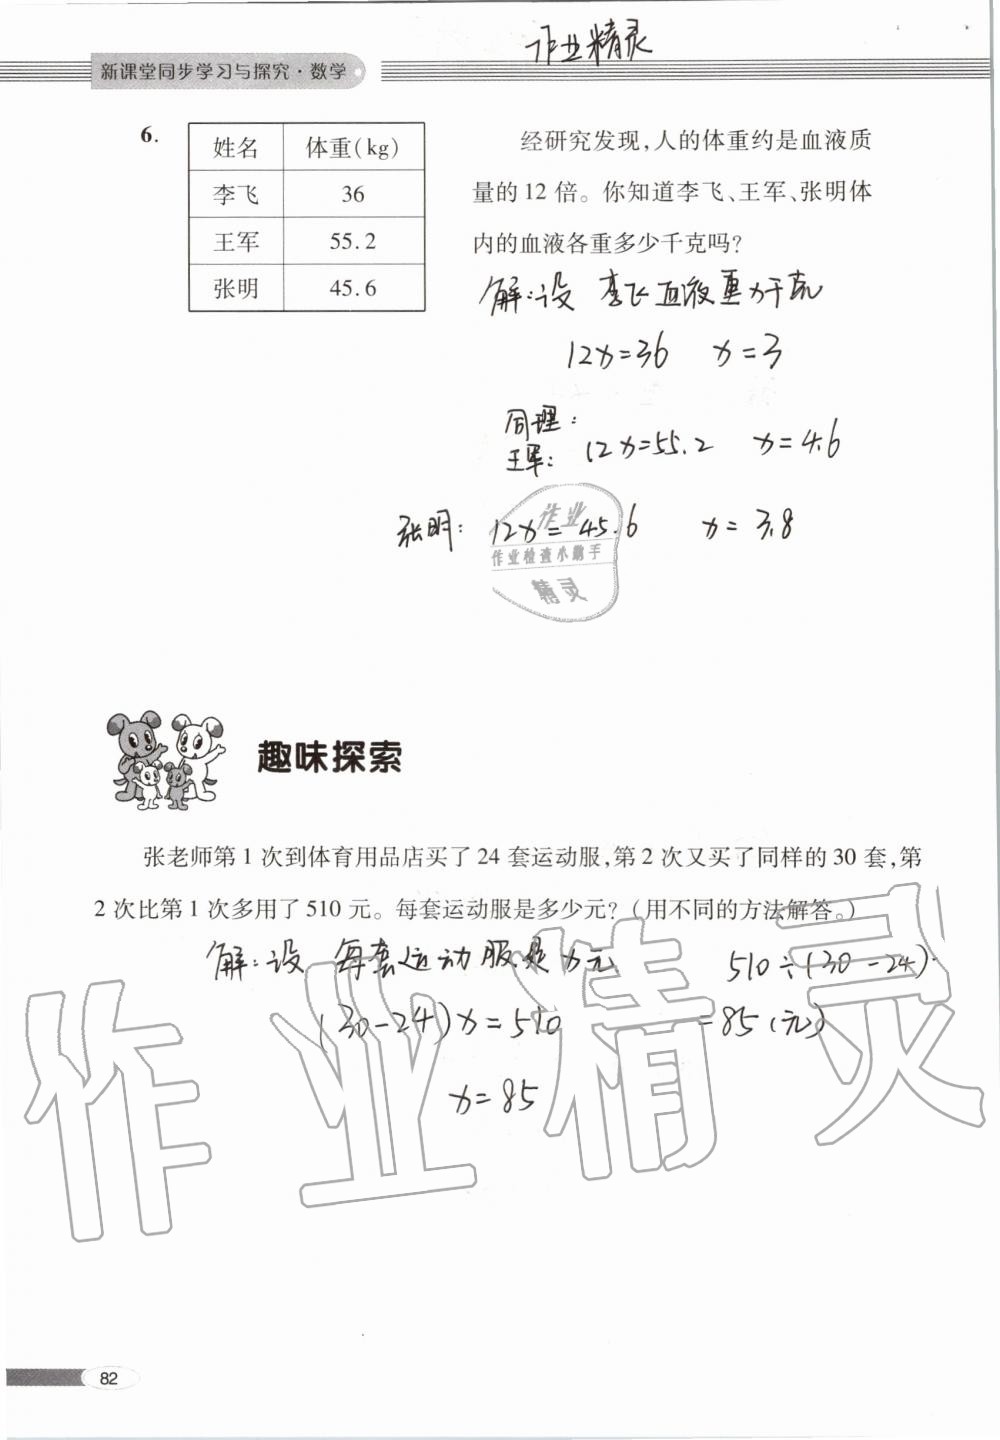 作业精灵
新课堂同步学习与探究·数学
6.
姓名 体重(kg)
李飞 36
王军 55.2
张明 45.6
经研究发现,人的体重约是血液质
量的12倍。你知道李飞、王军、张明体
内的血液各重多少千克吗?
解:设 李飞血液重x千克
12x=36 x=3
同理:
王军: 12x=55.2 x=4.6
张明: 12x=45.6 x=3.8
作业
作业检查小助手
精灵
趣味探索
张老师第1次到体育用品店买了24套运动服,第2次又买了同样的30套,第
2次比第1次多用了510元。每套运动服是多少元?(用不同的方法解答。)
解:设 每套运动服是x元 510÷(30-24)
(30-24)x=510 =85(元)
x=85
作业精灵
82